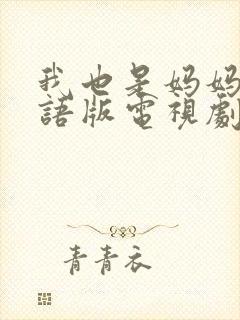 我也是妈妈
語版電視劇
青青衣